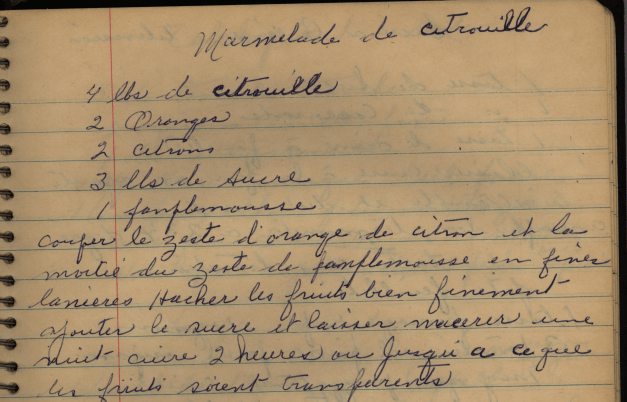 Marmelade de citrouille
4 lbs de citrouille
2 Oranges
2 citrons
3 lbs de sucre
1 pamplemousse
couper le zeste d'orange de citron et la
moitié du zeste de pamplemousse en fines
lanieres Hacher les fruits bien finement
Ajouter le sucre et laisser macerer une
nuit - cuire 2 heures ou jusqu'a ce que
les fruits soient transparents